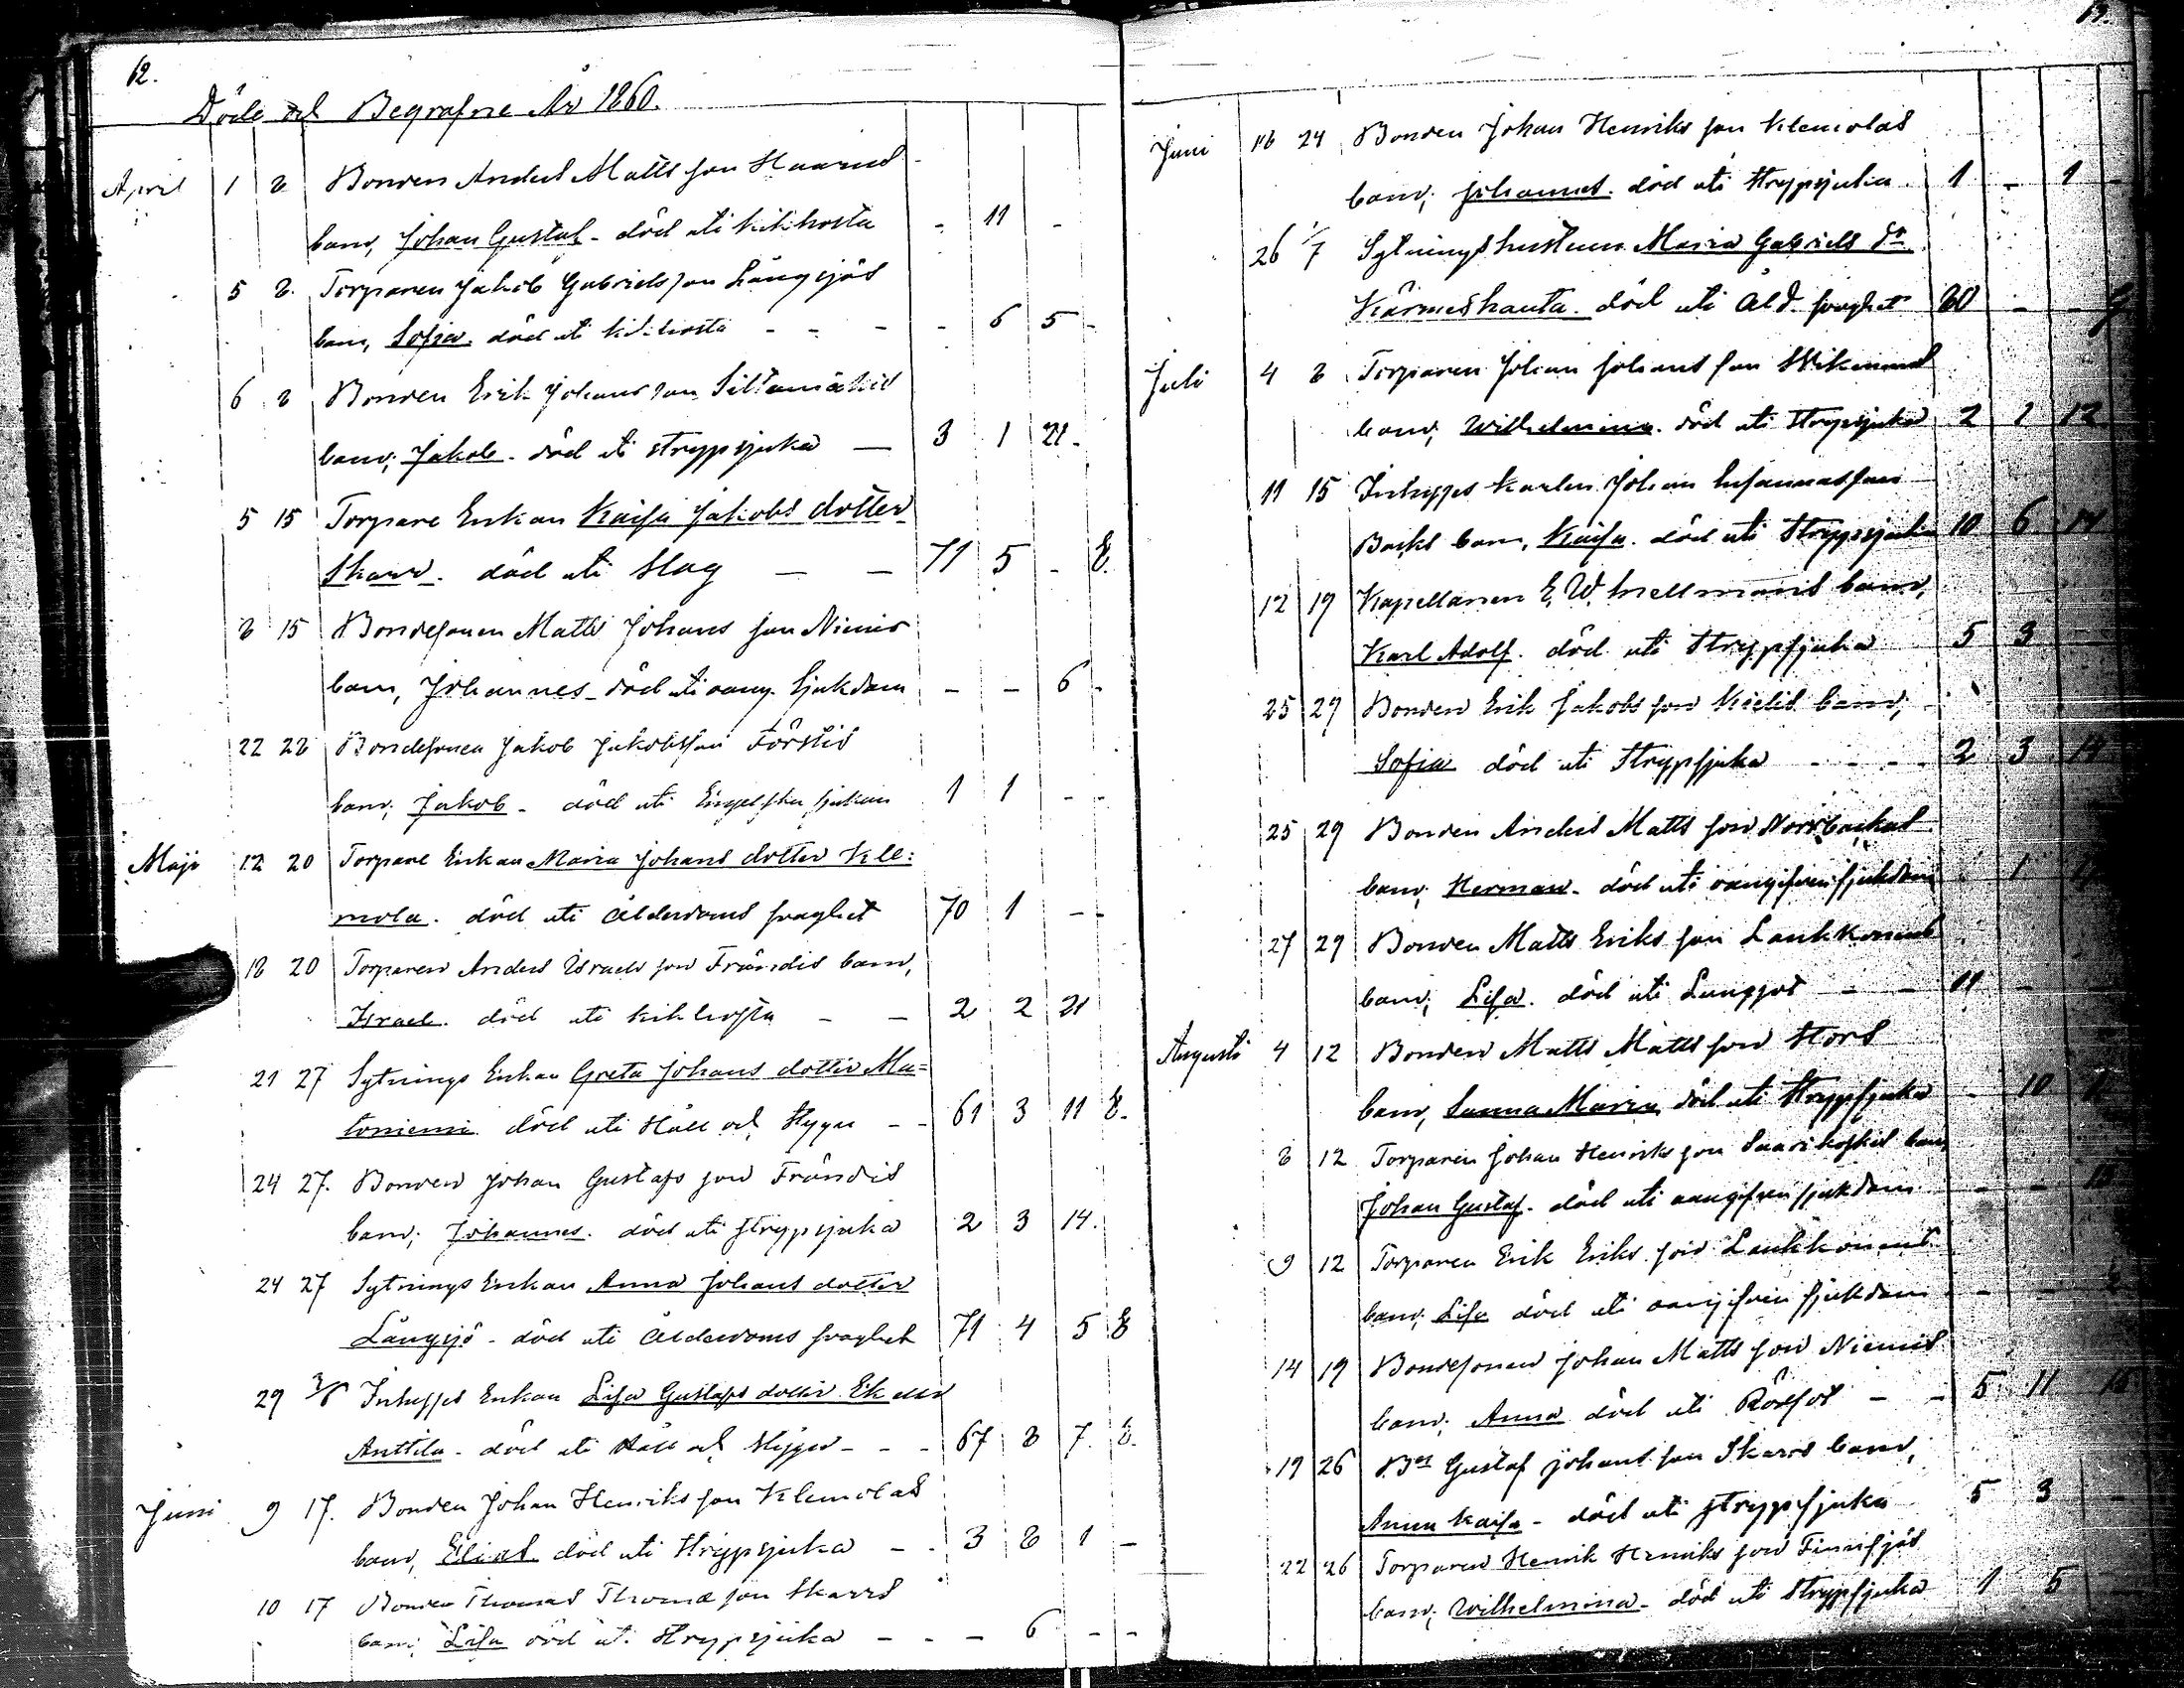 12.
Döde och Begrafne År 1860.
April 1 8 Bonden Anders Matts son Haarus
barn, Johan Gustaf - död uti kikhosta - 11 -
5 8. Torparen Jakob Gabriels son Långsjös
barn, Sofia. död uti kikhosta - - - - 6 5 -
6 8 Bonden Erik Johans son Siltamäkis
barn; Jakob - död uti strypsjuka — 3 1 21 -
5 15 Torpare Enkan Kaisa Jakobs dotter
Skarv. död uti Slag — — 71 5 - E.
8 15 Bondesonen Matts Johans son Niemis
barn, Johannes - död uti oang. sjukdom - - 6 -
22 22 Bondesonen Jakob Jakobsson Förstis
barn; Jakob - död uti Engelska sjukan 1 1 - -
Maji 12 20 Torpare Enkan Maria Johans dotter Kle:
mola. död uti Ålderdoms svaghet 70 1 - -
18 20 Torparen Anders Israels son Frändis barn,
Israel. död uti kikhosta - — 2 2 21
21 27 Sytnings Enkan Greta Johans dotter Ma=
toniemi död uti Håll och Stygn - - 61 3 11 E.
24 27. Bonden Johan Gustafs son Frändis
barn; Johannes. död uti strypsjuka 2 3 14.
24 27 Sytnings Enkan Anna Johans dotter
Långsjö - död uti Ålderdoms svaghet 71 4 5 E
29 3/6 Inhyses Enkan Lisa Gustafs dotter Ek eller
Anttila - död uti Håll och Stygn - - - 67 8 7. E.
Juni 9 17. Bonden Johan Henriks son Klemolas
barn, Elias död uti Strypsjuka - - 3 8 1 -
10 17 Bonden Thomas Thomæ son Skarvs
barn; Lisa död ut. Strypsjuka - - - 6 - -
13.
Juni 16 24 Bonden Johan Henriks son Klemolas
barn; Johannes. död uti Strypsjuka. 1 - 1 -
26 1/7 Sytningshustrun Maria Gabriels dr
Kärmeshauta. död uti Åld. svaghet 80 - -
Juli 4 8 Torparen Johan Johans son
barn; Wilhelmina. död uti Strypsjuka 2 1 12
11 15 Inhyses Karlen Johan
Backs barn, Kaisa. död uti Strypsjuka 10 6 14
12 19 Kapellanen E. W. Snellmans barn,
Karl Adolf. död uti Strypsjuka 5 3 -
25 29 Bonden Erik Jakobs son barn;
Sofia död uti Strypsjuka - - - 2 3 14
25 29 Bonden Anders Matts son Norrbackas
barn; Herman - död uti oangifven sjukdom - 1
27 29 Bonden Matts Eriks son Laukkonens
barn; Lisa. död uti Lungsot - - 11 -
Augusti 4 12 Bonden Matts Matts son Hors
barn, Sanna Maria, död uti Strypsjuka - 10
8 12 Torparen Johan Henriks son Saarikoskis barn,
Johan Gustaf. död uti oangifven sjukdom - - 15
9 12 Torparen Erik Eriks son Laukkonens
barn; Lisa död uti oangifven sjukdom - -
14 19 Bondesonen Johan Matts son Niemis
barn; Anna död uti Rödsot - - 5 11 15
19 26 Bn Gustaf Johans son Skarvs barn,
Anna Kaisa - död uti strypsjuka 5 3 -
22 26 Torparen Henrik Henriks son Finnsjös
barn; Wilhelmina - död uti Strypsjuka 1 5